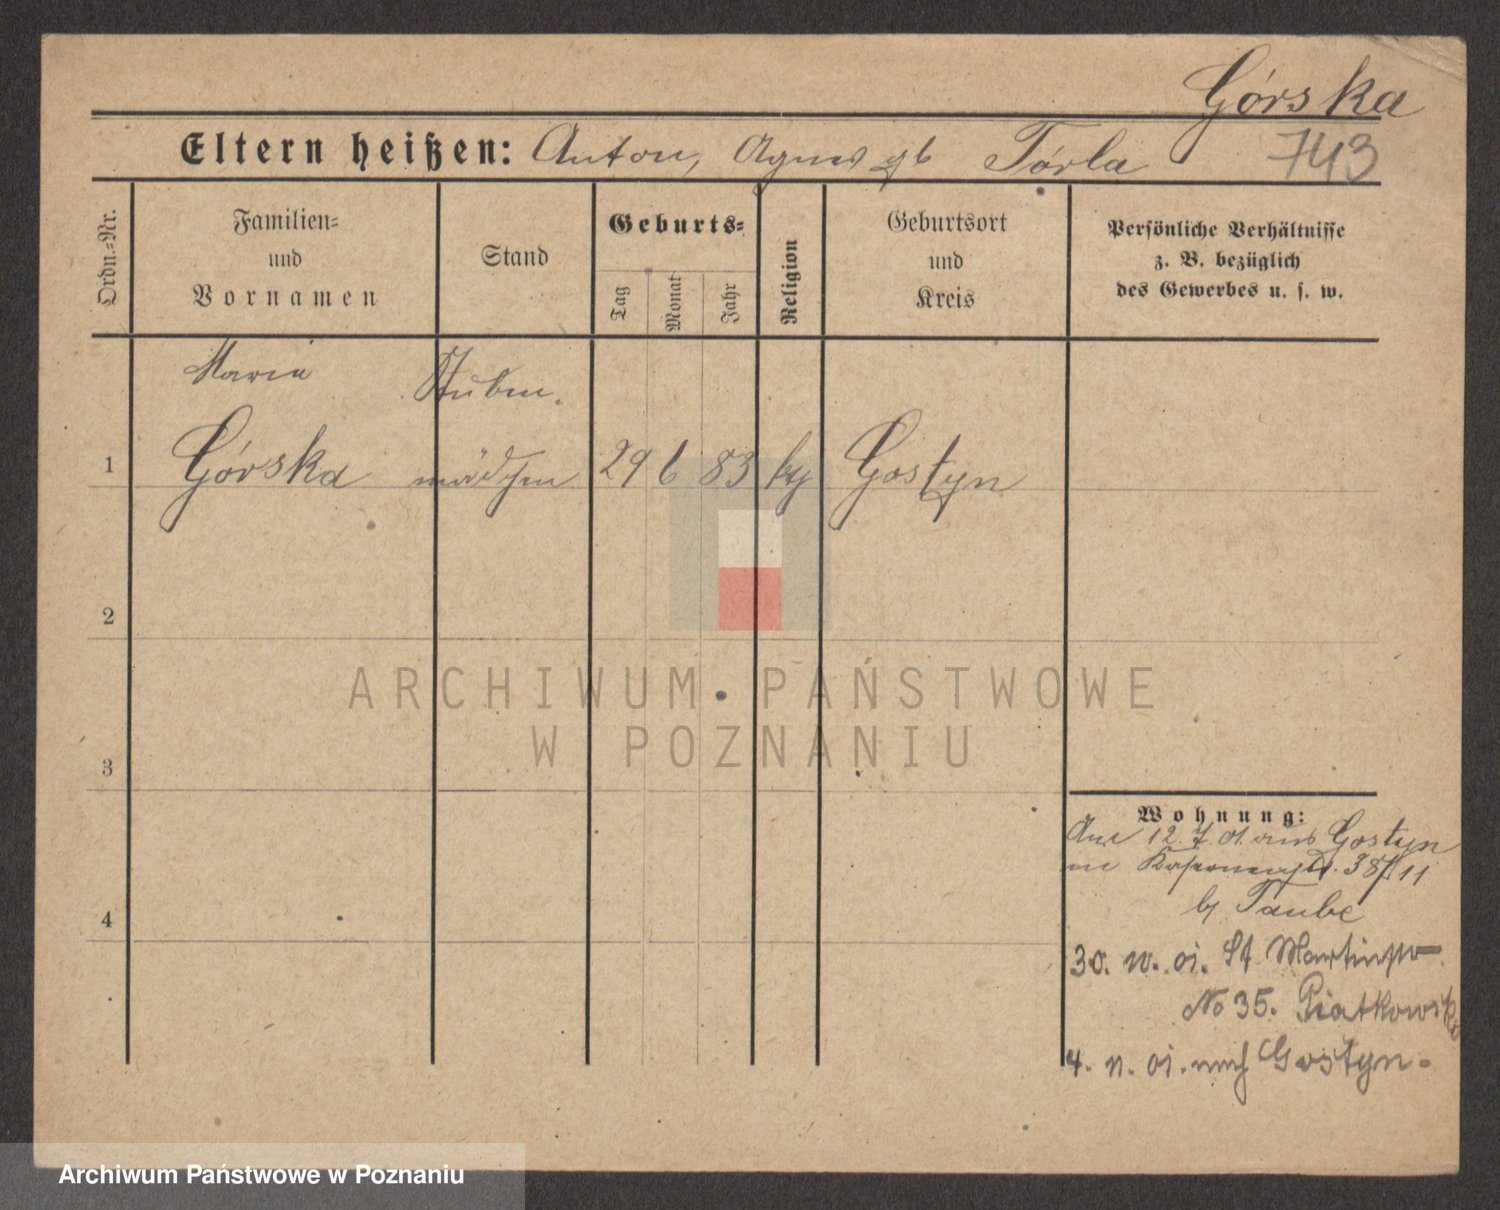 Górska
Eltern heißen: Anton, Agnes gb Tórla
743
Ordn.-Nr.
Familien-
und
Vornamen
Stand
Geburts-
Tag
Monat
Jahr
Religion
Geburtsort
und
Kreis
Persönliche Verhältnisse
z. B. bezüglich
des Gewerbes u. s. w.
Maria Stuben
1 Górska mädchen 29 6 83 Gostyn
2
ARCHIWUM PAŃSTWOWE
W POZNANIU
3
Wohnung:
12. 7. 01. aus Gostyn
38/11
4
b/ Taube
30. 01. St Martinstr
No 35. Piatkowski
4. 01. nach Gostyn.
Archiwum Państwowe w Poznaniu